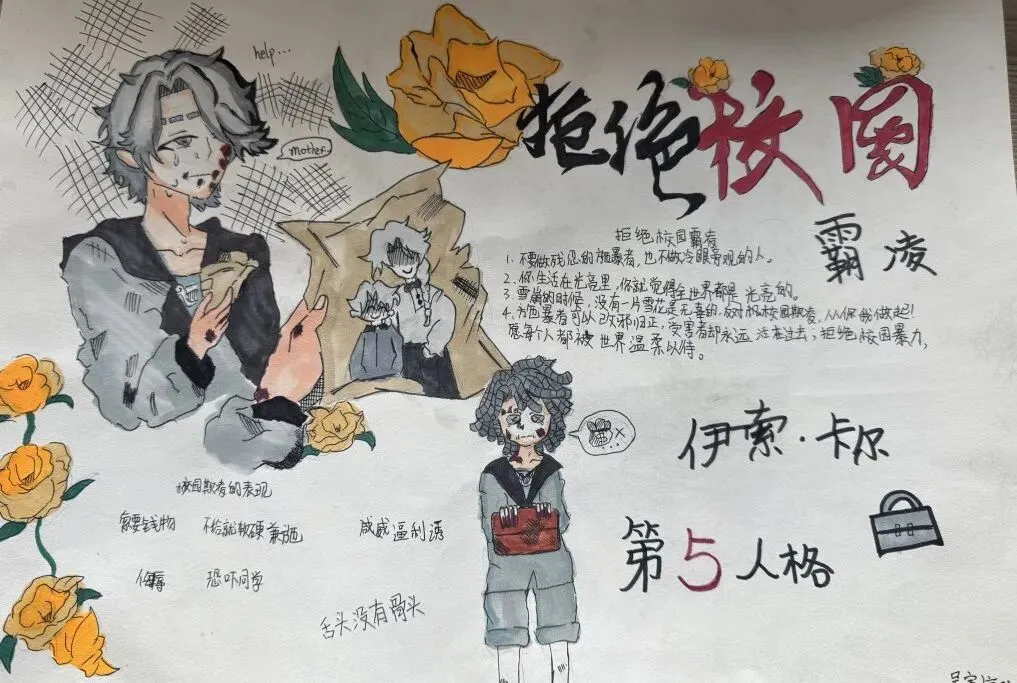 help...
mother
拒绝校园
霸凌
拒绝校园霸凌
1. 不要做残忍的施暴者,也不做冷眼旁观的人。
2. 你生活在光亮里,你就觉得全世界都是光亮的。
3. 雪崩的时候,没有一片雪花是无辜的,反对机校园欺凌,从你我做起!
4. 施暴者可以改邪归正,受害者却永远活在过去;拒绝校园暴力,
愿每个人都被世界温柔以待。
伊索·卡尔
第5人格
校园欺者的表现
索要钱物 不给就软硬兼施 威逼利诱
侮辱 恐吓同学
舌头没有骨头